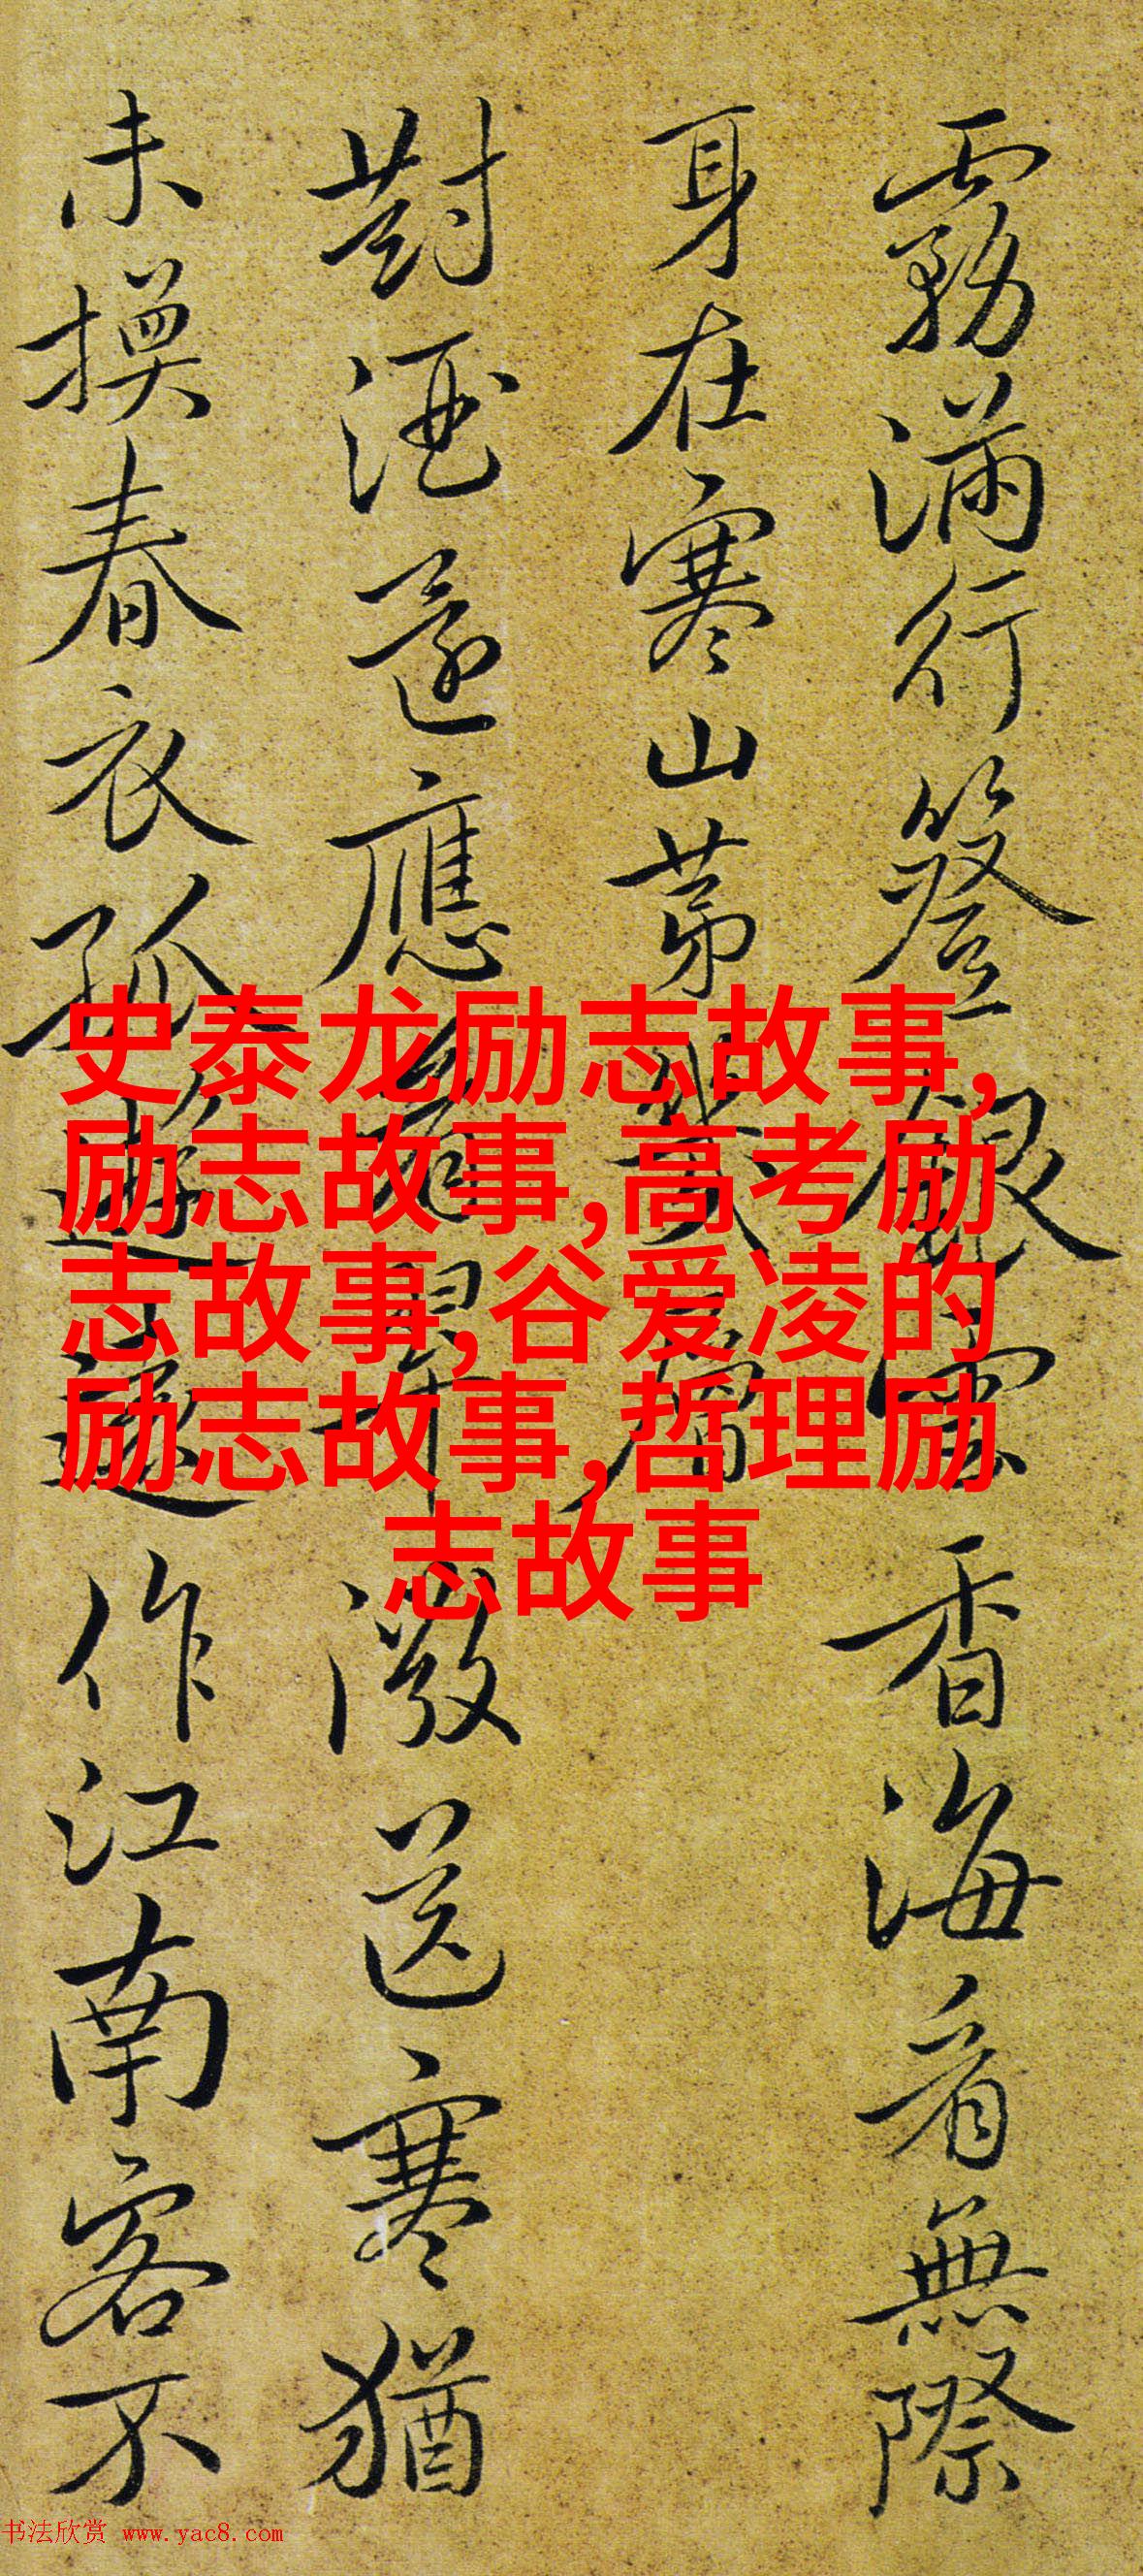 霧滿行簦銀雲香海看無際
身在寒山苐幾層
對酒還應激送寒猶
未換春衣孤遊遂作江南客不
史泰龙励志故事,
励志故事,高考励
志故事,谷爱凌的
励志故事,哲理励
志故事
书法欣赏 www.yac8.com